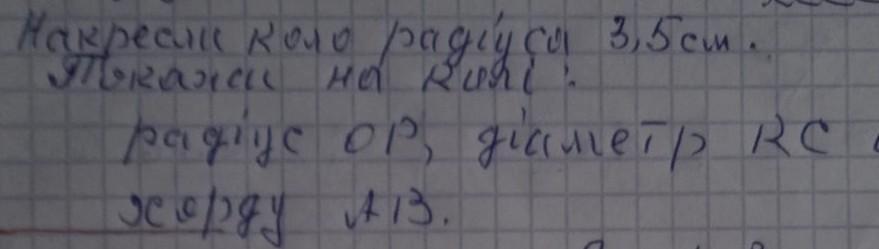 Накресли коло радіуса 3,5 см.
Покажи на колі:
радіус ОР, діаметр КС
хорду АВ.